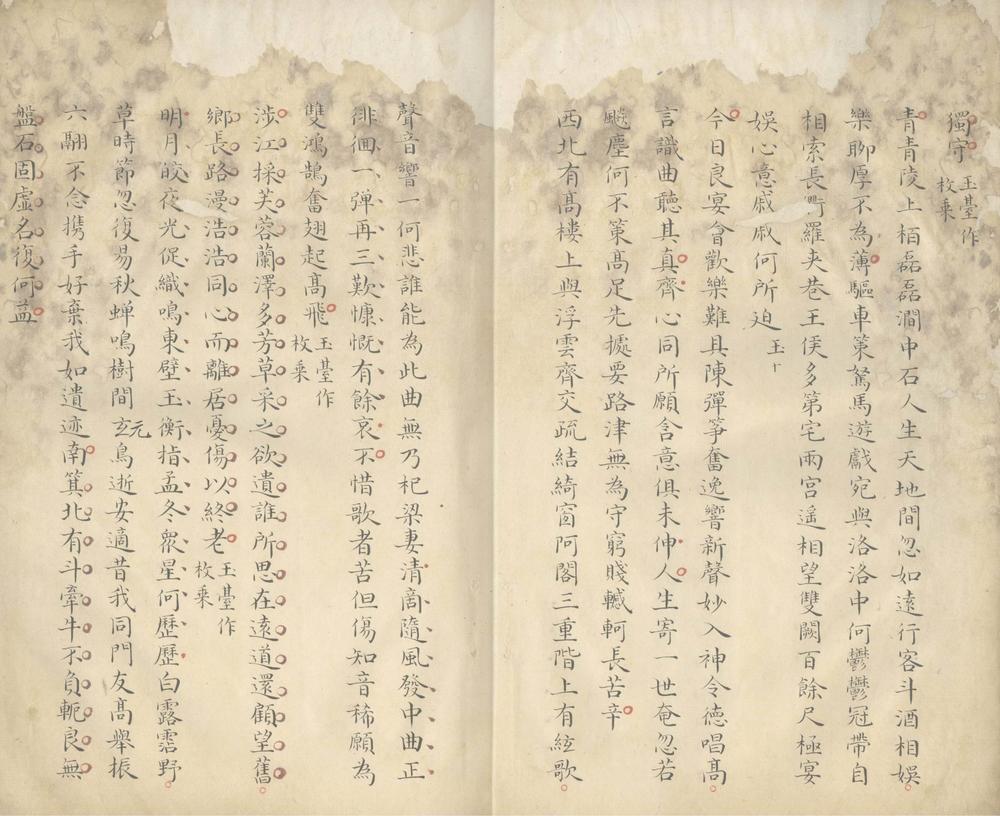 獨守 玉臺作枚乘
青青陵上栢磊磊澗中石人生天地間忽如遠行客斗酒相娛
樂聊厚不為薄驅車策駑馬遊戲宛與洛洛中何鬱鬱冠帶自
相索長衢羅夾巷王侯多第宅兩宮遥相望雙闕百餘尺極宴
娛心意戚戚何所迫
今日良宴會歡樂難具陳彈箏奮逸響新聲妙入神令德唱高
言識曲聽其真齊心同所願含意俱未伸人生寄一世奄忽若
飈塵何不策高足先據要路津無為守窮賤轗軻長苦辛
西北有高樓上與浮雲齊交疏結綺窗阿閣三重階上有絃歌
聲音響一何悲誰能為此曲無乃杞梁妻清商隨風發中曲正
徘徊一彈再三歎慷慨有餘哀不惜歌者苦但傷知音稀願為
雙鴻鵠奮翅起高飛 玉臺作枚乘
涉江採芙蓉蘭澤多芳草采之欲遺誰所思在遠道還顧望舊
鄉長路漫浩浩同心而離居憂傷以終老 玉臺作枚乘
明月皎夜光促織鳴東壁玉衡指孟冬衆星何歷歷白露霑野
草時節忽復易秋蟬鳴樹間玄元鳥逝安適昔我同門友高舉振
六翮不念携手好棄我如遺迹南箕北有斗牽牛不負軛良無
盤石固虛名復何益